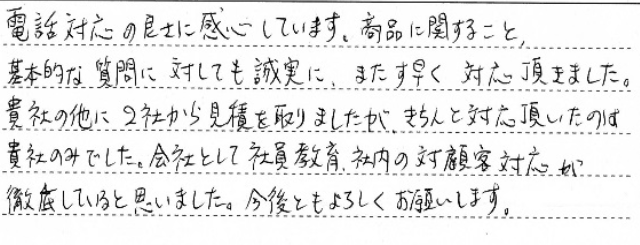 電話対応の良さに感心しています。商品に関すること、
基本的な質問に対しても誠実に、また す早く 対応頂きました。
貴社の他に2社から見積を取りましたが、きちんと対応頂いたのは
貴社のみでした。会社として社員教育、社内の対顧客対応が
徹底していると思いました。今後ともよろしくお願いします。